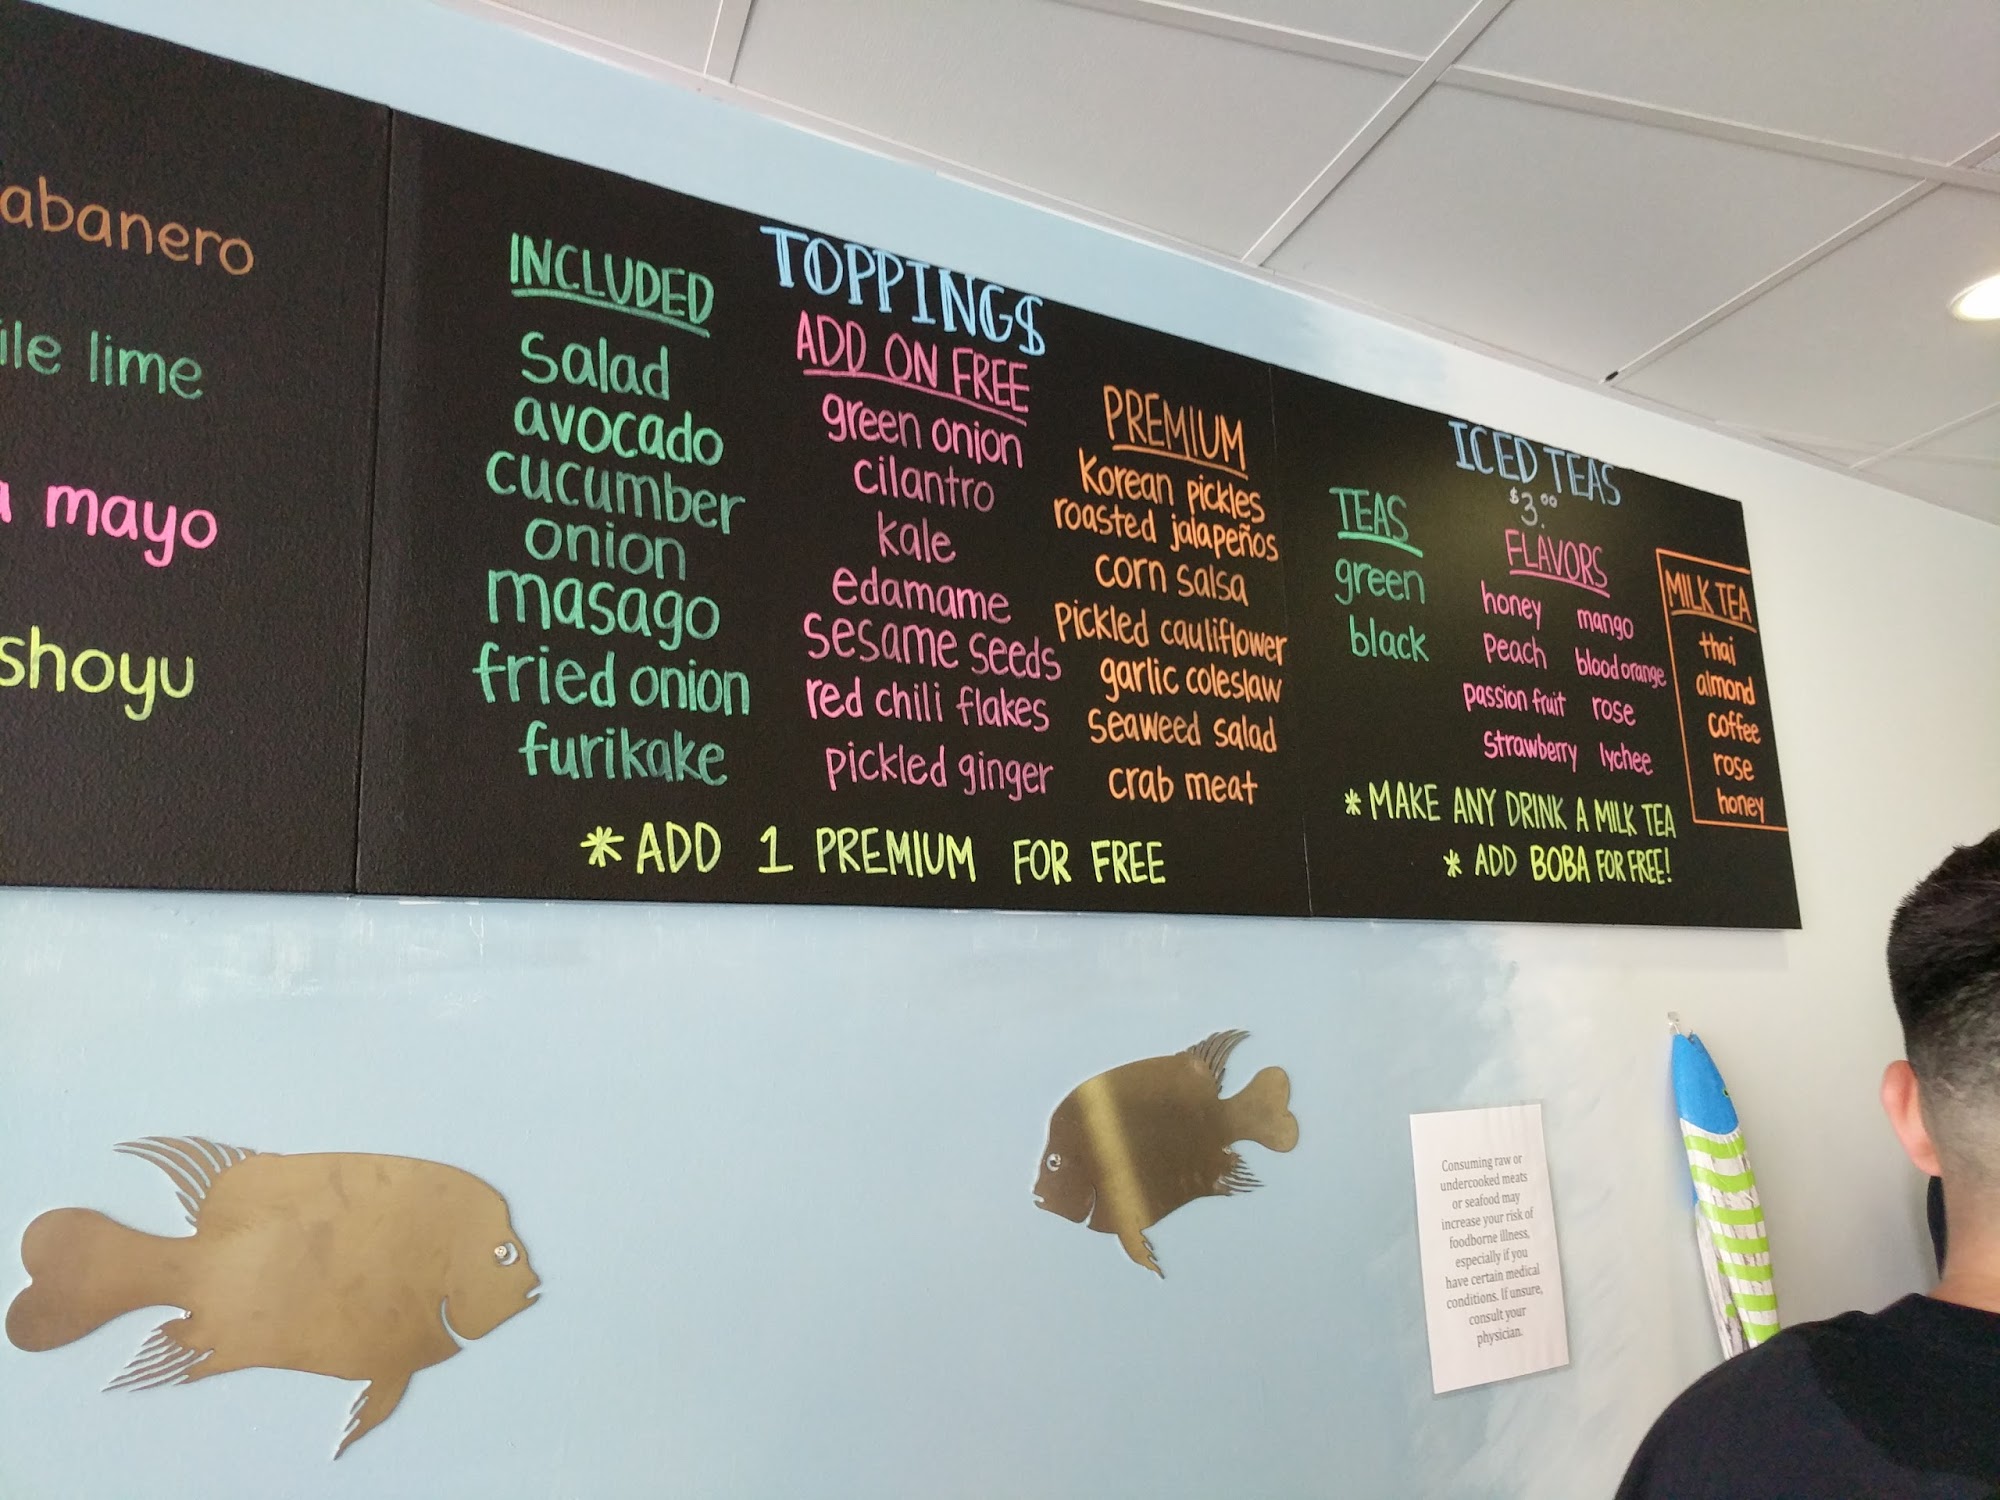 lime
mayo
shoyu
TOPPINGS
INCLUDED
salad
avocado
cucumber
onion
masago
fried onion
furikake
ADD ON FREE
green onion
cilantro
kale
edamame
sesame seeds
red chili flakes
pickled ginger
PREMIUM
Korean pickles
roasted jalapeños
corn salsa
pickled cauliflower
garlic coleslaw
seaweed salad
crab meat
* ADD 1 PREMIUM FOR FREE
ICED TEAS
$3.00
TEAS
green
black
FLAVORS
honey mango
peach blood orange
passion fruit rose
strawberry lychee
MILK TEA
thai
almond
coffee
rose
honey
* MAKE ANY DRINK A MILK TEA
* ADD BOBA FOR FREE!
Consuming raw or
undercooked meats
or seafood may
increase your risk of
foodborne illness,
especially if you
have certain medical
conditions. If unsure,
consult your
physician.